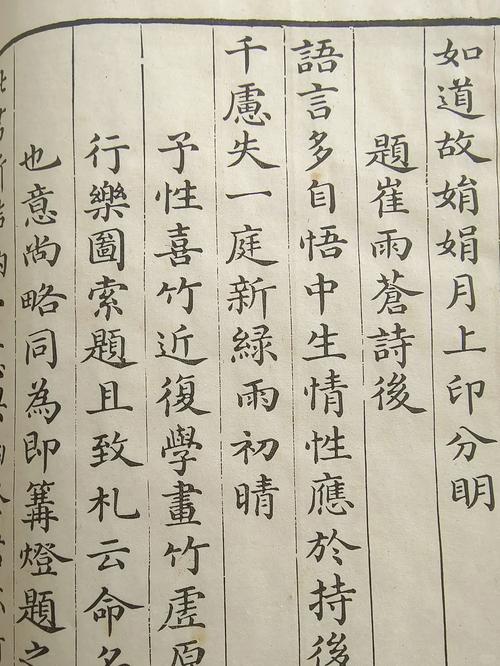 如道故娟娟月上印分明
題崔雨蒼詩後
語言多自悟中生情性應於持後
千慮失一庭新綠雨初晴
予性喜竹近復學畫竹虛原
行樂圖索題且致札云命名
也意尚略同為即篝燈題之